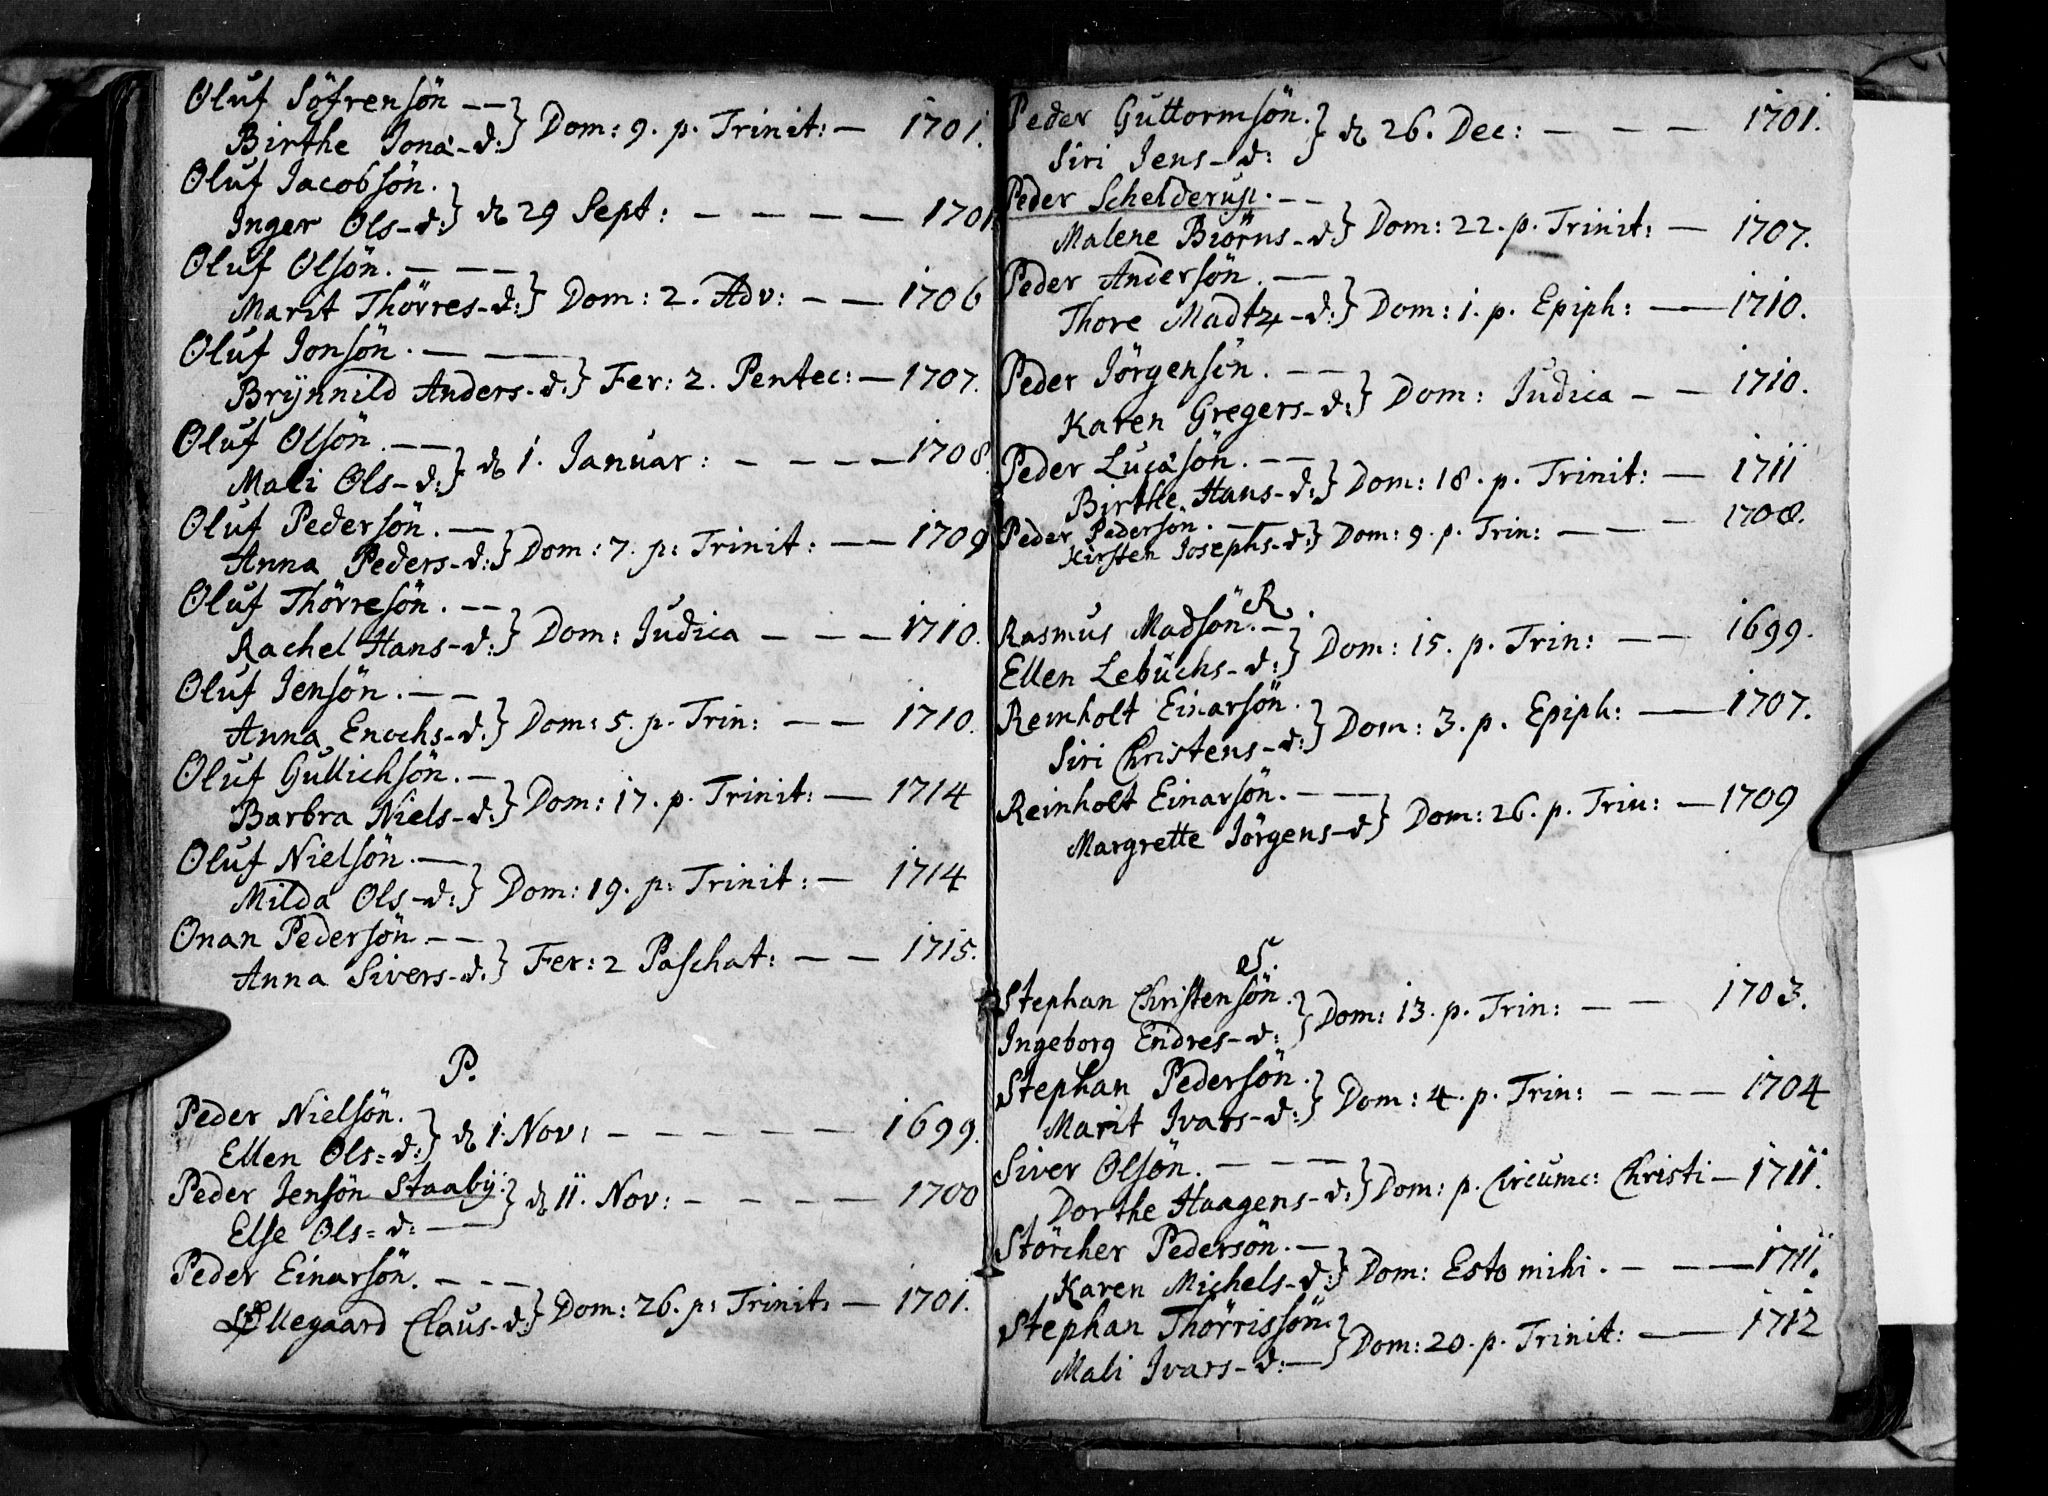 Oluf Söfrensön — —
Birthe Jona-d: } Dom: 9. p. Trinit: — 1701.
Oluf Jacobsön.
Inger Ols-d: } d 29 Sept: — — — — 1701.
Oluf Olsön. — — —
Marit Thörres-d: } Dom: 2. Adv: — — 1706
Oluf Jonsön. — —
Brÿnnild Anders-d: } Fer: 2. Pentec: — 1707.
Oluf Olsön. — —
Mali Ols-d: } d 1. Januar: — — — — 1708.
Oluf Pedersön. —
Anna Peders-d: } Dom: 7. p: Trinit: — — 1709
Oluf Thörresön. — —
Rachel Hans-d: } Dom: Judica — — — 1710.
Oluf Jensön. — —
Anna Enochs-d: } Dom: 5. p. Trin: — — 1710.
Oluf Gullichsön. —
Barbra Niels-d: } Dom: 17. p. Trinit: — 1714
Oluf Nielsön. —
Milda Ols-d: } Dom: 19. p: Trinit: — 1714
Onan Pedersön — —
Anna Sivers-d: } Fer: 2 Paschat: — — 1715.
P.
Peder Nielsön.
Ellen Ols=d: } d 1. Nov: — — — — — — 1699.
Peder Jensön Staabÿ.
Else Ols=d: — } d 11. Nov: — — — — 1700
Peder Einarsön. — — —
Ellegaard Claus-d: } Dom: 26. p: Trinit: — 1701.
Peder Guttormsön.
Siri Jens-d: } d 26. Dec: — — — 1701.
Peder Schelderup. — —
Malene Biörns-d: } Dom: 22. p. Trinit: — 1707.
Peder Andersön. —
Thore Madtz-d: } Dom: 1. p. Epiph: — 1710.
Peder Jörgensön. — —
Karen Gregers-d: } Dom: Judica — — 1710.
Peder Lucasön. — —
Birthe Hans-d: } Dom: 18. p. Trinit: — 1711
Peder Pedersön. — —
Kirsten Josephs-d: } Dom: 9. p. Trin: — — — 1708.
R.
Rasmus Madsön. —
Ellen Lebuchs-d: } Dom: 15. p. Trin: — — 1699.
Reinholt Einarsön.
Siri Christens-d: } Dom: 3. p. Epiph: — 1707.
Reinholt Einarsön. — —
Margrette Jörgens-d } Dom: 26. p. Trin: — 1709
S.
Stephan Christensön.
Ingeborg Endres-d: } Dom: 13. p. Trin: — — 1703.
Stephan Pedersön.
Marit Ivars-d: } Dom: 4. p. Trin: — — — 1704
Siver Olsön. — — —
Dorthe Haagens-d: } Dom: p. Circumc: Christi — 1711.
Störcher Pedersön. —
Karen Michels-d: } Dom: Esto mihi. — — — 1711.
Stephan Thörrissön.
Mali Ivars-d: — } Dom: 20. p. Trinit: — — 1712